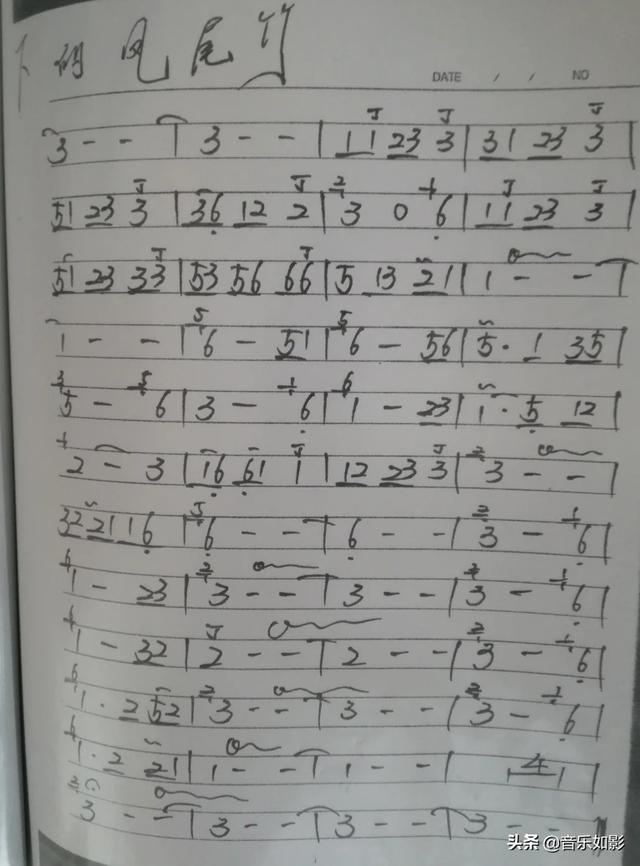 下的凤尾竹
DATE / / NO
3 - - | 3 - - | 11 23 3 | 31 23 3
51 23 3 | 36 12 2 | 3 0 6 | 11 23 3
51 23 33 | 53 56 66 | 5 13 21 | 1 - -
1 - - | 6 - 51 | 6 - 56 | 5 · 1 35
5 - 6 | 3 - 6 | 1 - 23 | 1 · 5 12
2 - 3 | 16 61 1 | 12 23 3 | 3 - -
32 21 16 | 6 - - | 6 - - | 3 - 6
1 - 23 | 3 - - | 3 - - | 3 - 6
1 - 32 | 2 - - | 2 - - | 3 - 6
1 · 2 52 | 3 - - | 3 - - | 3 - 6
1 · 2 21 | 1 - - | 1 - - | 4 1
3 - - | 3 - - | 3 - - | 3 - -
头条 @音乐如影